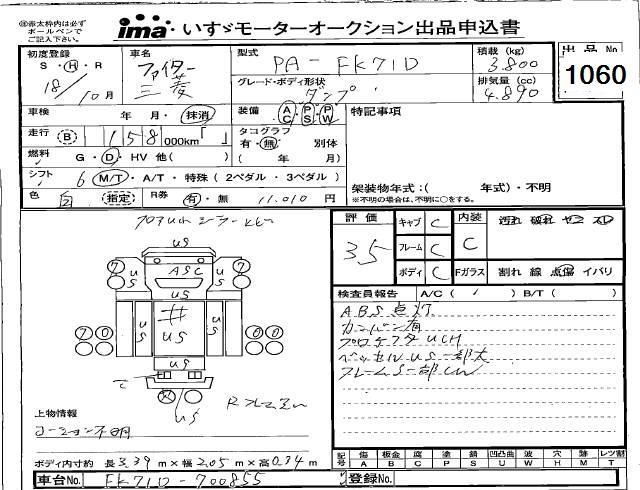 ㊟赤太枠内は必ず
ボールペンで
ご記入下さい。
ima いすゞモーターオークション出品申込書
初度登録
S・H・R
18/10月
車名
ファイター
三菱
型式
PA-FK71D
積載(kg)
3.800
出品No
1060
グレード・ボディ形状
ダンプ
排気量(cc)
4.890
車検 年・月・抹消
装備 AC PS PW
特記事項
走行 B 158 000km「 」
タコグラフ
有・無 別体
( 年 月)
燃料 G・D・HV 他( )
シフト 6 M/T・A/T・特殊(2ペダル・3ペダル)
色 白 指定 R券 有・無 11.010円
架装物年式:( 年式)・不明
※不明の場合は、不明に○をする。
評価
3.5
キャブ C
フレーム C
ボディ C
内装 C
汚れ 破れ ヤニ スレ
Fガラス 割れ 線 点傷 イバリ
検査員報告 A/C( / ) B/T( )
ABS点灯
カンバン有
プロテクタUCH
ベッセルUS一部大
フレームS一部CH
us
7 7
ASC
us us
us
us us
us
7 0 0
us
us
上物情報
コーション不明
ボディ内寸約 長3.39m×幅2.05m×高0.34m
記号 傷 板金 腐 塗 錆 凹凸曲 波 穴 跡 レツ割
A B C P S U W H M T
車台No. FK71D-700855
登録No.